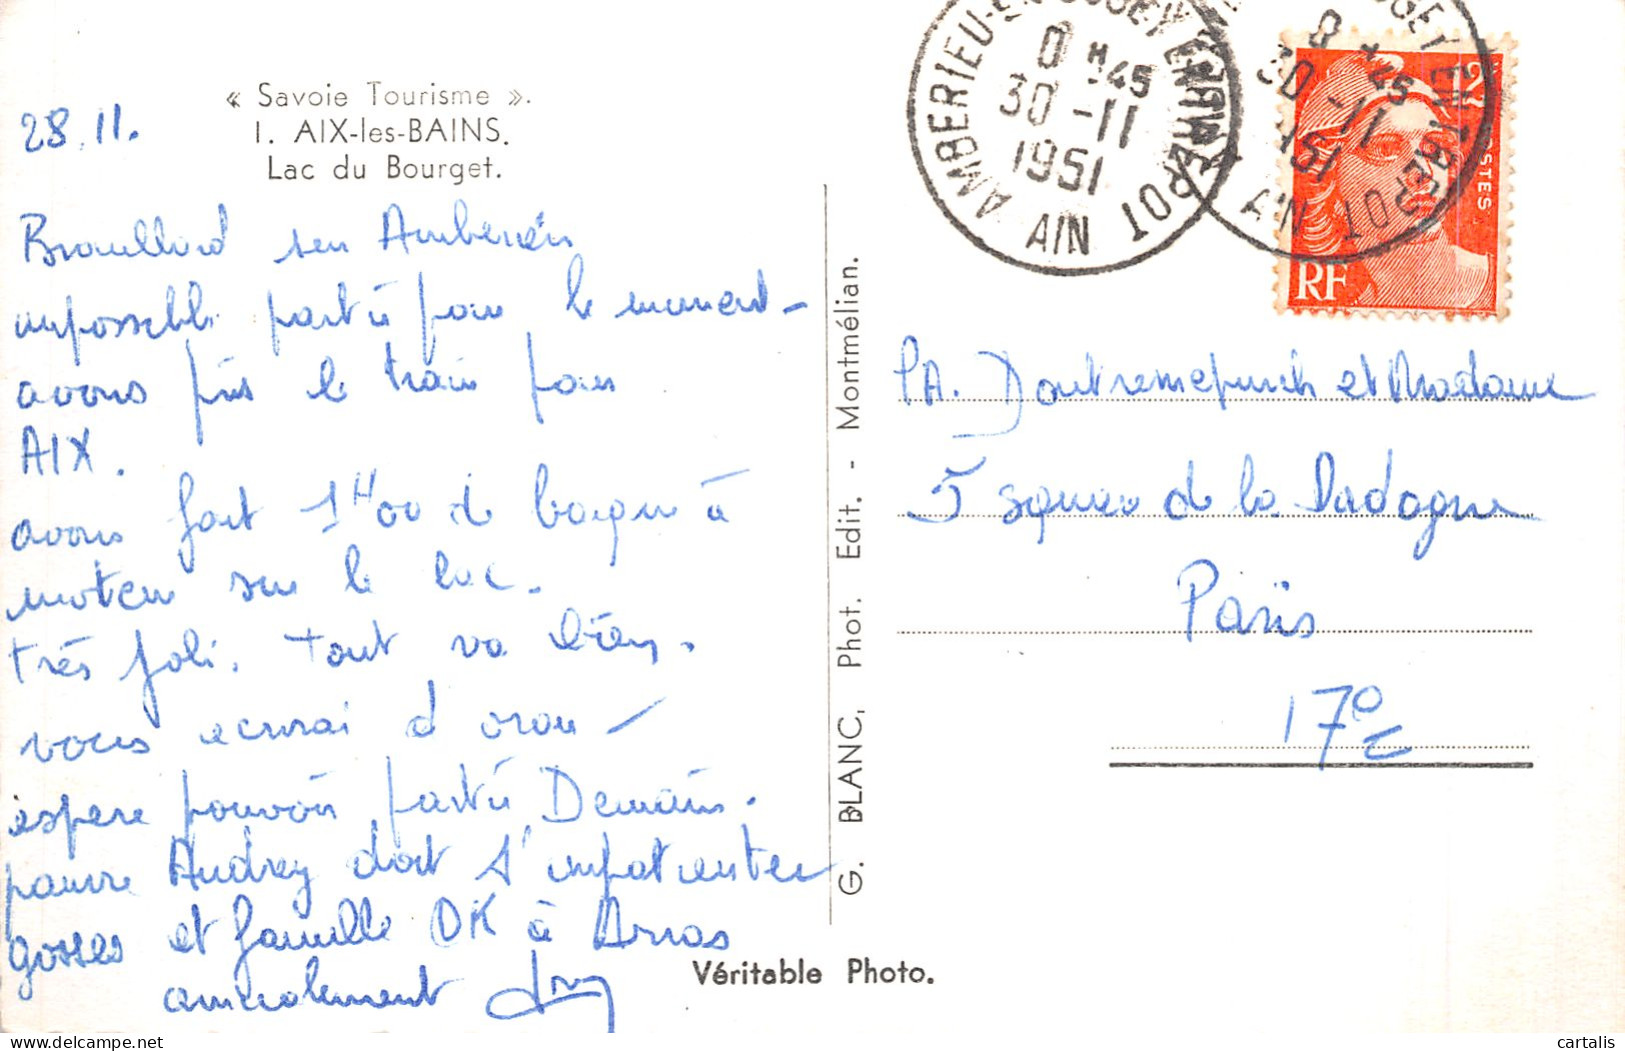 « Savoie Tourisme ».
1. AIX-les-BAINS.
Lac du Bourget.
28.11.
Brouillard sur Amberieu
impossible partir pour le moment -
avons pris le train pour
AIX.
avons fait 1H00 de barque à
moteur sur le lac.
très joli. tout va bien.
vous ecrirai d
espere pouvoir partir Demain.
pauvre Audrey doit s'impatienter
gosses et famille OK à Arras
amicalement
G. BLANC, Phot. Edit. - Montmélian.
Véritable Photo.
AMBERIEU-EN-BUGEY ENTREPOT
0 H 45
30 -11
1951
AIN
BUGEY ENTREPOT
0 H 45
30 -11
1951
AIN
12F
POSTES
RF
et Madame
5 square de la Dordogne
Paris
17e
cartalis